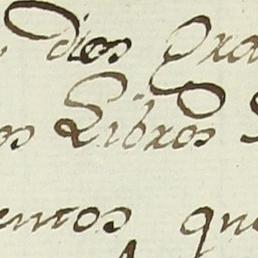 dios Gra
os Libros
emos que